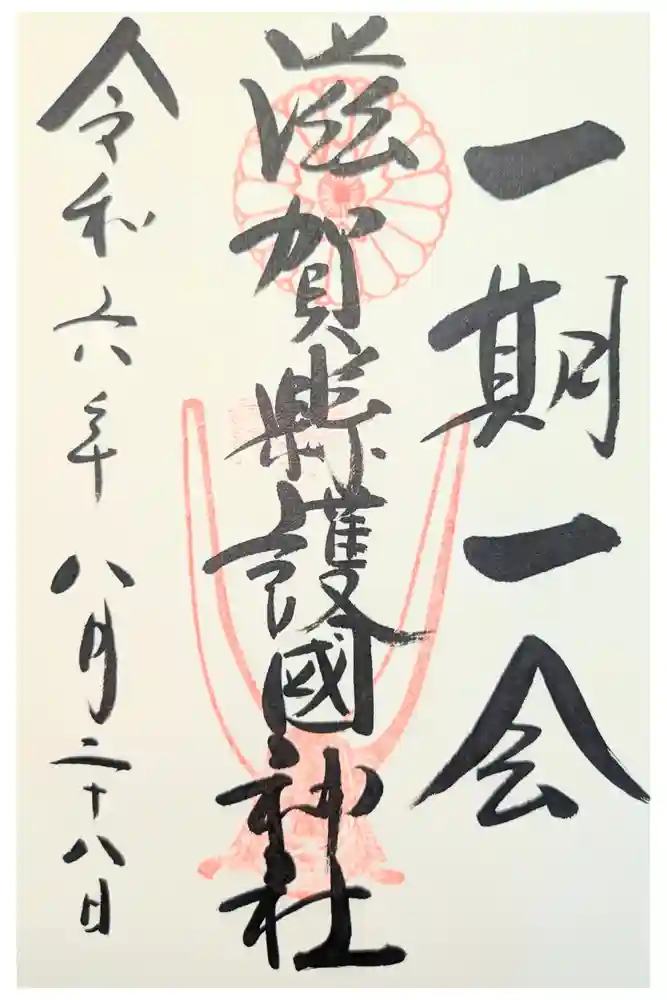 一期一会
滋賀縣護國神社
令和六年八月二十八日